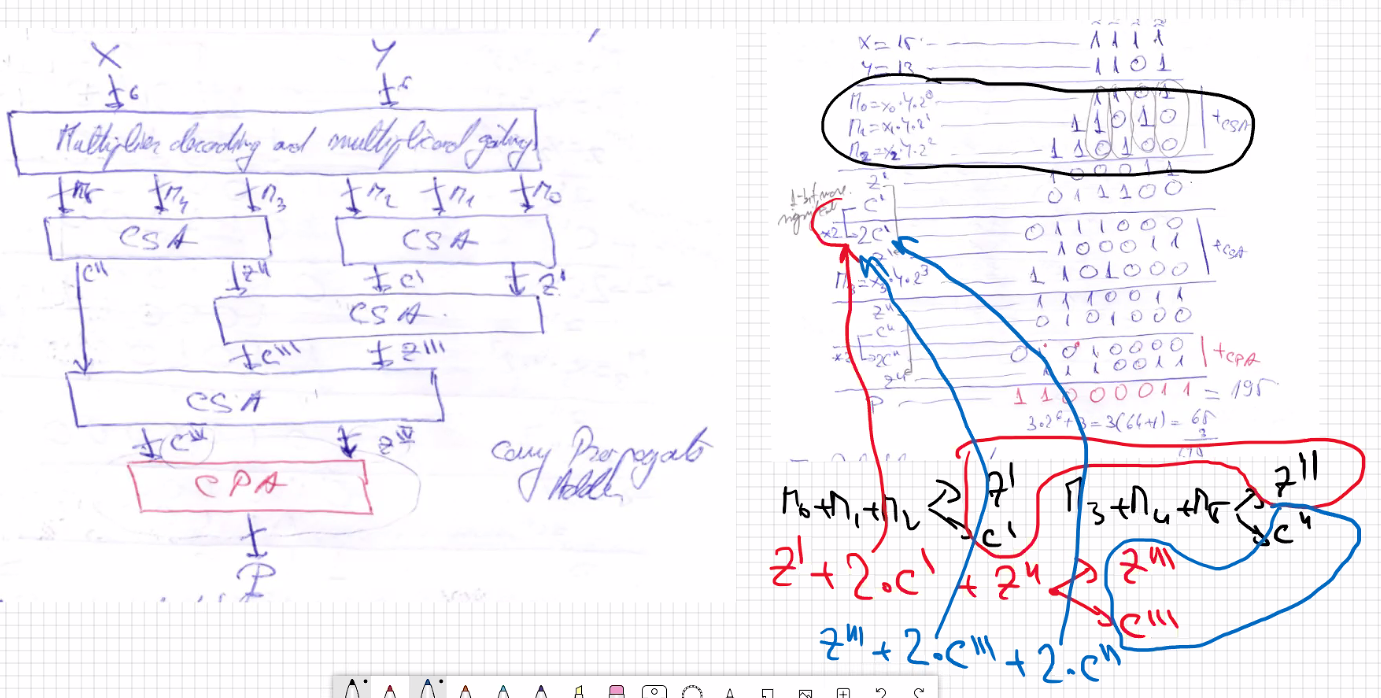 X Y
6 6
Multiplier decoding and multiplicand gating
M5 M4 M3 M2 M1 M0
CSA CSA
C'' Z'' C' Z'
CSA
C''' Z'''
CSA
C^IV Z^IV
CPA
P
Carry Propagate
Adder
X = 15 1 1 1 1
Y = 13 1 1 0 1
M0 = x0·Y·2^0 1 1 0 1
M1 = x1·Y·2^1 1 1 0 1 0 +CSA
M2 = x2·Y·2^2 1 1 0 1 0 0
Z' 1 0 0 0 1 1
1-bit more C' 0 1 1 1 0 0
×2 2C' 0 1 1 1 0 0 0
Z' 1 0 0 0 1 1 +CSA
M3 = x3·Y·2^3 1 1 0 1 0 0 0
Z'' 1 1 1 0 0 1 1
C'' 0 1 0 1 0 0 0
×2 2C'' 0 1 0 1 0 0 0 0
Z'' 1 1 1 0 0 1 1 +CPA
P 1 1 0 0 0 0 1 1 = 195
3·2^6 + 3 = 3(64+1) = 65
3
195
M0 + M1 + M2 Z' M3 + M4 + M5 Z''
C' C''
Z' + 2·C' + Z'' Z'''
C'''
Z''' + 2·C''' + 2·C''